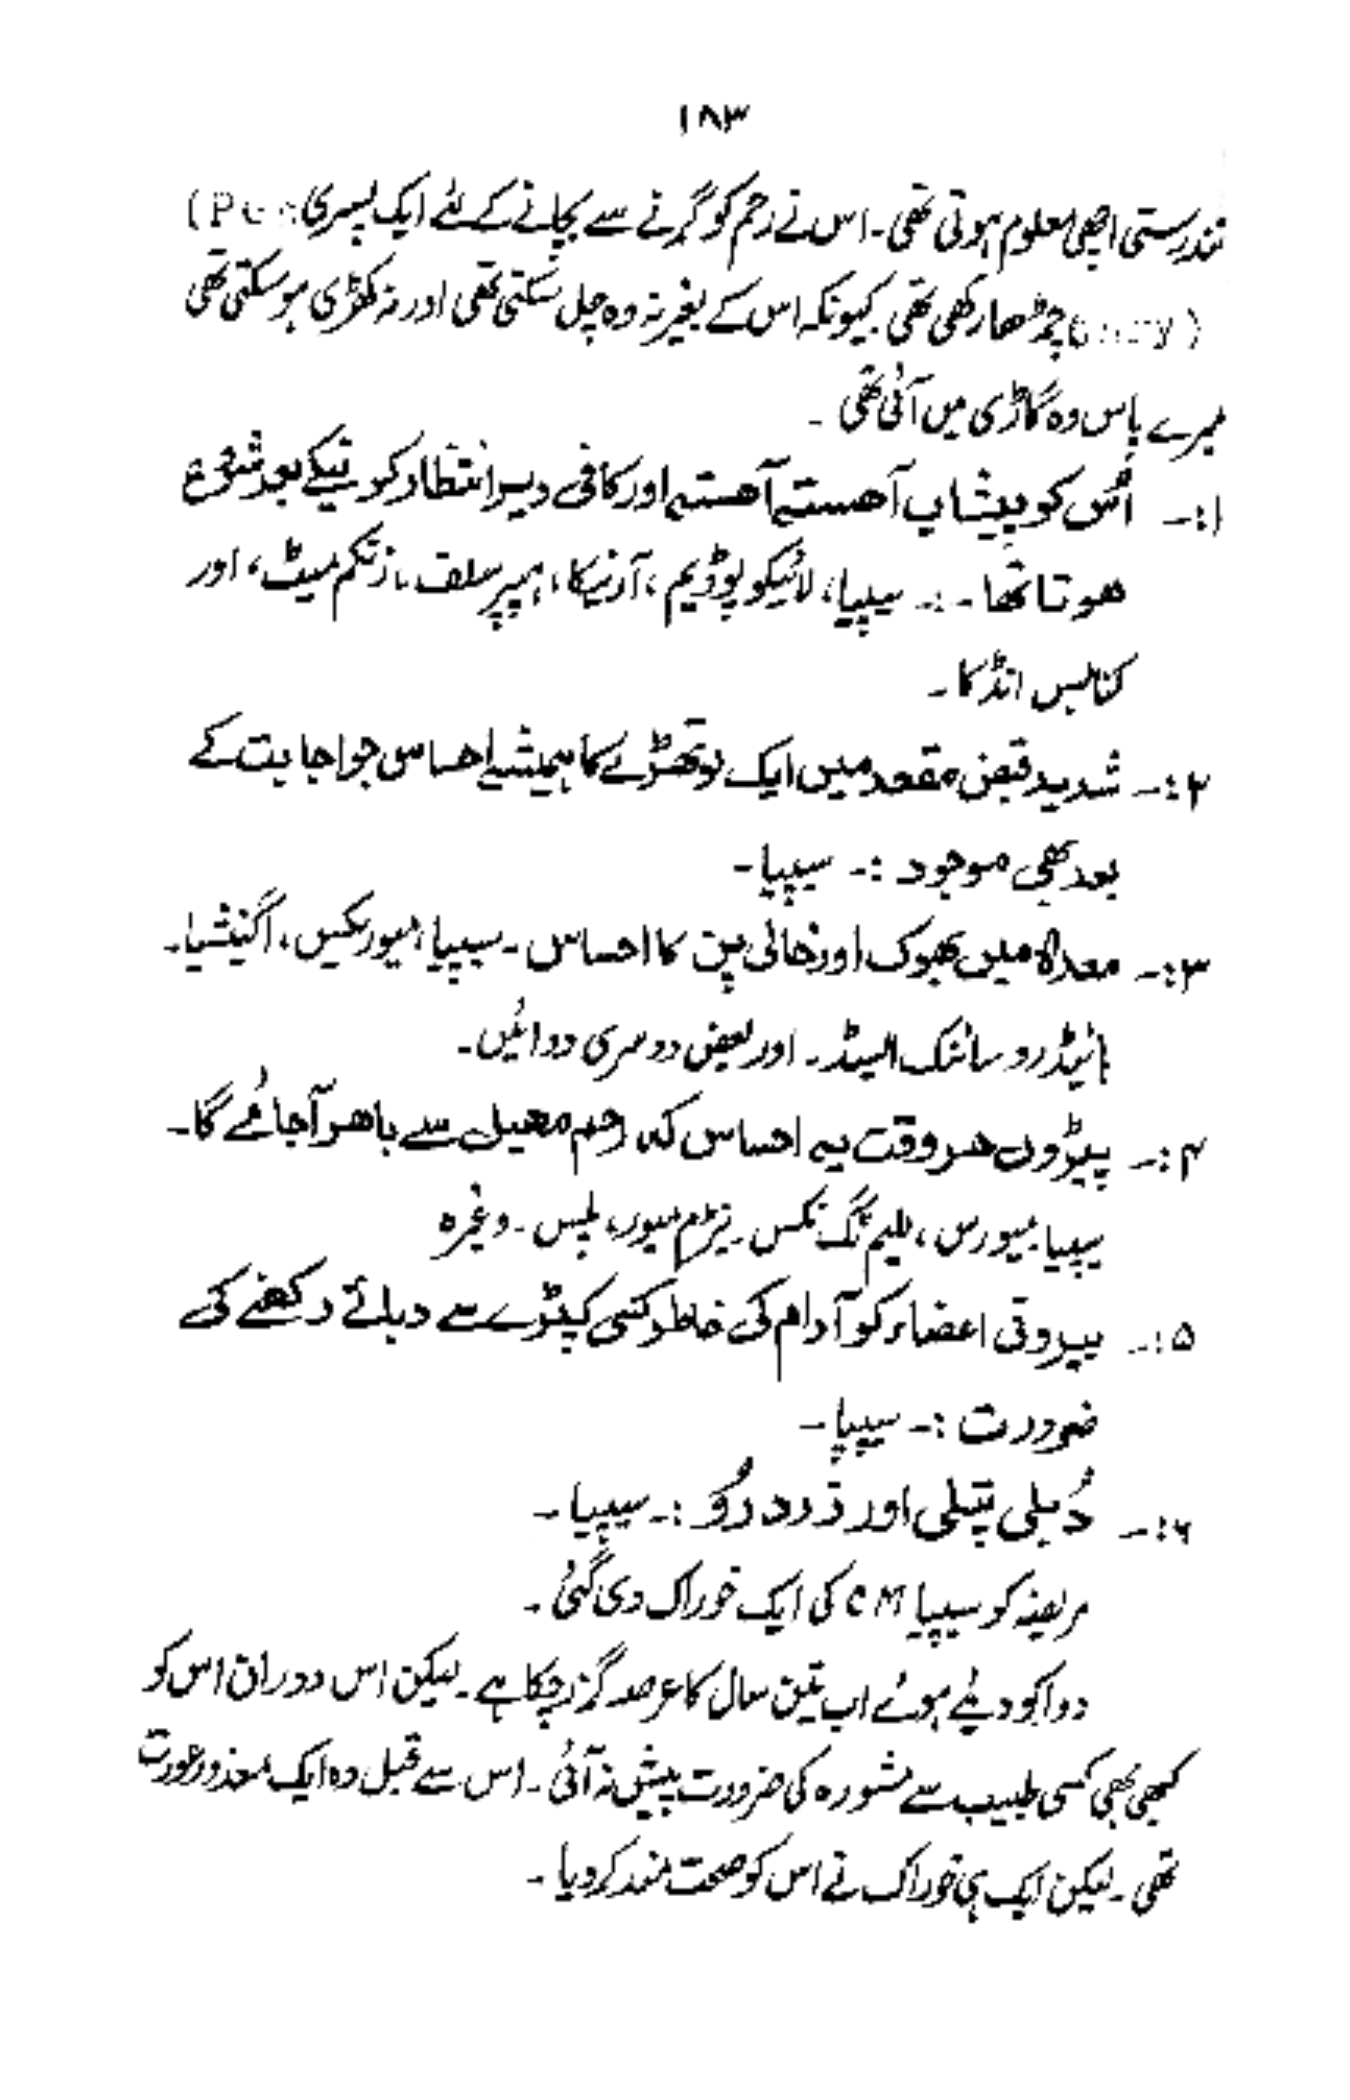 ۱۸۳
تندرستی اچھی معلوم ہوتی تھی۔ اس نے رحم کو گرنے سے بچانے کے لئے ایک پسری
چڑھا رکھی تھی کیونکہ اس کے بغیر نہ وہ چل سکتی تھی اور نہ کھڑی ہو سکتی تھی
میرے پاس وہ گاڑی میں آئی تھی ۔
۱:۔ اُس کو پیشاب آھستہ آھستہ اور کافی دیر انتظار کرنیکے بعد شروع
ھوتا تھا ۔ :۔ سیپیا، لائیکو پوڈیم، آرنیکا، ہیپر سلف، زنکم میٹ، اور
کنابس انڈکا ۔
۲:۔ شدید قبض مقعد میں ایک لوتھڑے کا ہمیشہ احساس جو اجابت کے
بعد بھی موجود :۔ سیپیا ۔
۳:۔ معدہ میں بھوک اور خالی پن کا احساس ۔ سیپیا، میوریکس، اگنیشیا۔
ہائیڈرو سائنک ایسڈ ۔ اور بعض دوسری دوائیں ۔
۴:۔ پیڑو میں ھر وقت یہ احساس کہ رحم مھبل سے باھر آجائے گا ۔
سیپیا، میورس، للیم ٹگ، نکس ۔ نیٹرم میور، پلس ۔ وغیرہ
۵:۔ بیرونی اعضاء کو آرام کی خاطر کسی کپڑے سے دبائے رکھنے کی
ضرورت :۔ سیپیا ۔
۶:۔ دُبلی پتلی اور زرد رُو :۔ سیپیا ۔
مریضہ کو سیپیا CM کی ایک خوراک دی گئی ۔
دوا کو دیئے ہوئے اب تین سال کا عرصہ گزر چکا ہے ۔ لیکن اس دوران اس کو
کبھی بھی کسی طبیب سے مشورہ کی ضرورت پیش نہ آئی ۔ اس سے قبل وہ ایک معذور عورت
تھی ۔ لیکن ایک ہی خوراک نے اس کو صحت مند کر دیا ۔